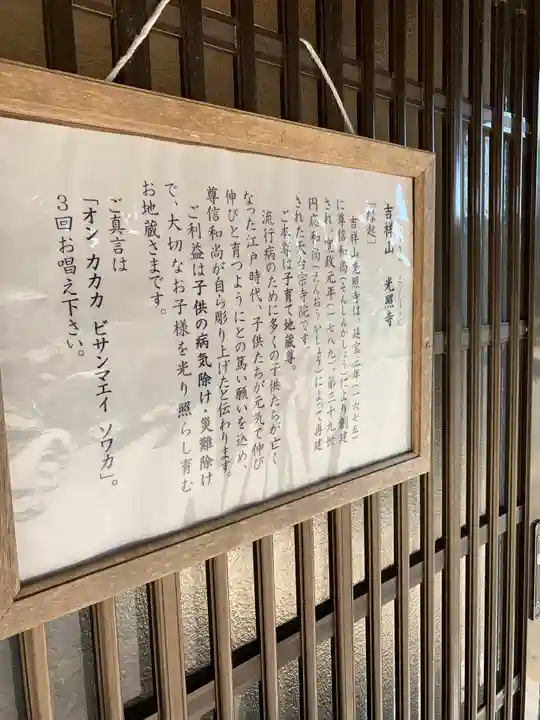 吉祥山 光照寺
「縁起」
吉祥山光照寺は、延宝三年（一六七五）
に尊信和尚（そんしんかしょう）により創建
され、寛政元年（一七八九）、第三十九世
円応和尚（えんおうかしょう）によって再建
された天台宗寺院です。
ご本尊は子育て地蔵尊。
流行病のために多くの子供たちが亡く
なった江戸時代、子供たちが元気で伸び
伸びと育つようにとの篤い願いを込め、
尊信和尚が自ら彫り上げたと伝わります。
ご利益は子供の病気除け・災難除け
で、大切なお子様を光り照らし育む
お地蔵さまです。
ご真言は
「オン カカカ ビサンマエイ ソワカ」。
３回お唱え下さい。